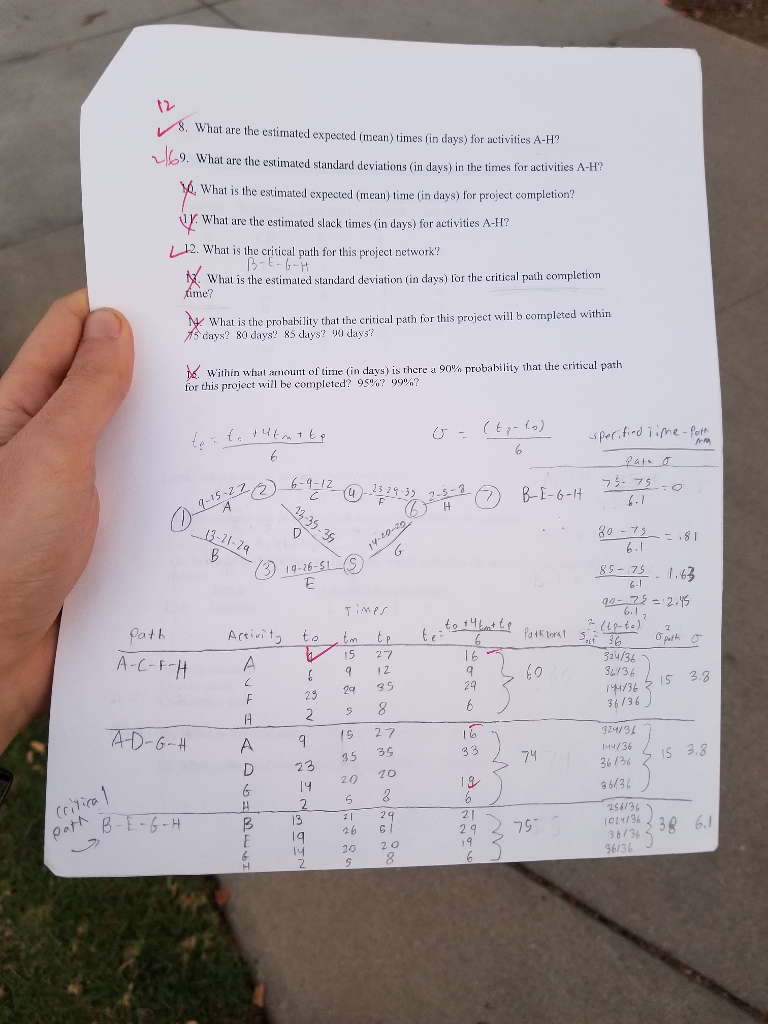 12
8. What are the estimated expected (mean) times (in days) for activities A-H?
2/6 9. What are the estimated standard deviations (in days) in the times for activities A-H?
10. What is the estimated expected (mean) time (in days) for project completion?
11. What are the estimated slack times (in days) for activities A-H?
12. What is the critical path for this project network?
B-E-G-H
13. What is the estimated standard deviation (in days) for the critical path completion
time?
14. What is the probability that the critical path for this project will b completed within
75 days? 80 days? 85 days? 90 days?
Within what amount of time (in days) is there a 90% probability that the critical path
for this project will be completed? 95%? 99%?
te = to + 4tm + tp
6
σ = (tp - to)
6
specified Time - Path
Path σ
9-15-27
A
2
6-9-12
C
4
23-29-35
F
6
2-5-8
H
7
1
13-21-29
B
3
19-26-51
E
5
23-35-35
D
14-20-20
G
B-E-G-H
75-75 = 0
6.1
80-75 = .81
6.1
85-75 1.63
6.1
90-75 = 2.45
6.1
Times
Path Activity to tm tp te = to + 4tm + tp / 6 Path total (tp-to)² / 36 σ² path σ
A-C-F-H A 15 27 16 324/36
C 6 9 12 9 36/36
F 23 29 35 29 144/36
H 2 5 8 6 36/36
60 15 3.8
A-D-G-H A 9 15 27 16 324/36
D 23 35 35 33 144/36
G 14 20 20 19 36/36
H 2 5 8 6 36/36
74 15 3.8
critical
path B-E-G-H B 13 21 29 21 256/36
E 19 26 51 29 1024/36
G 14 20 20 19 36/36
H 2 5 8 6 36/36
75 38 6.1